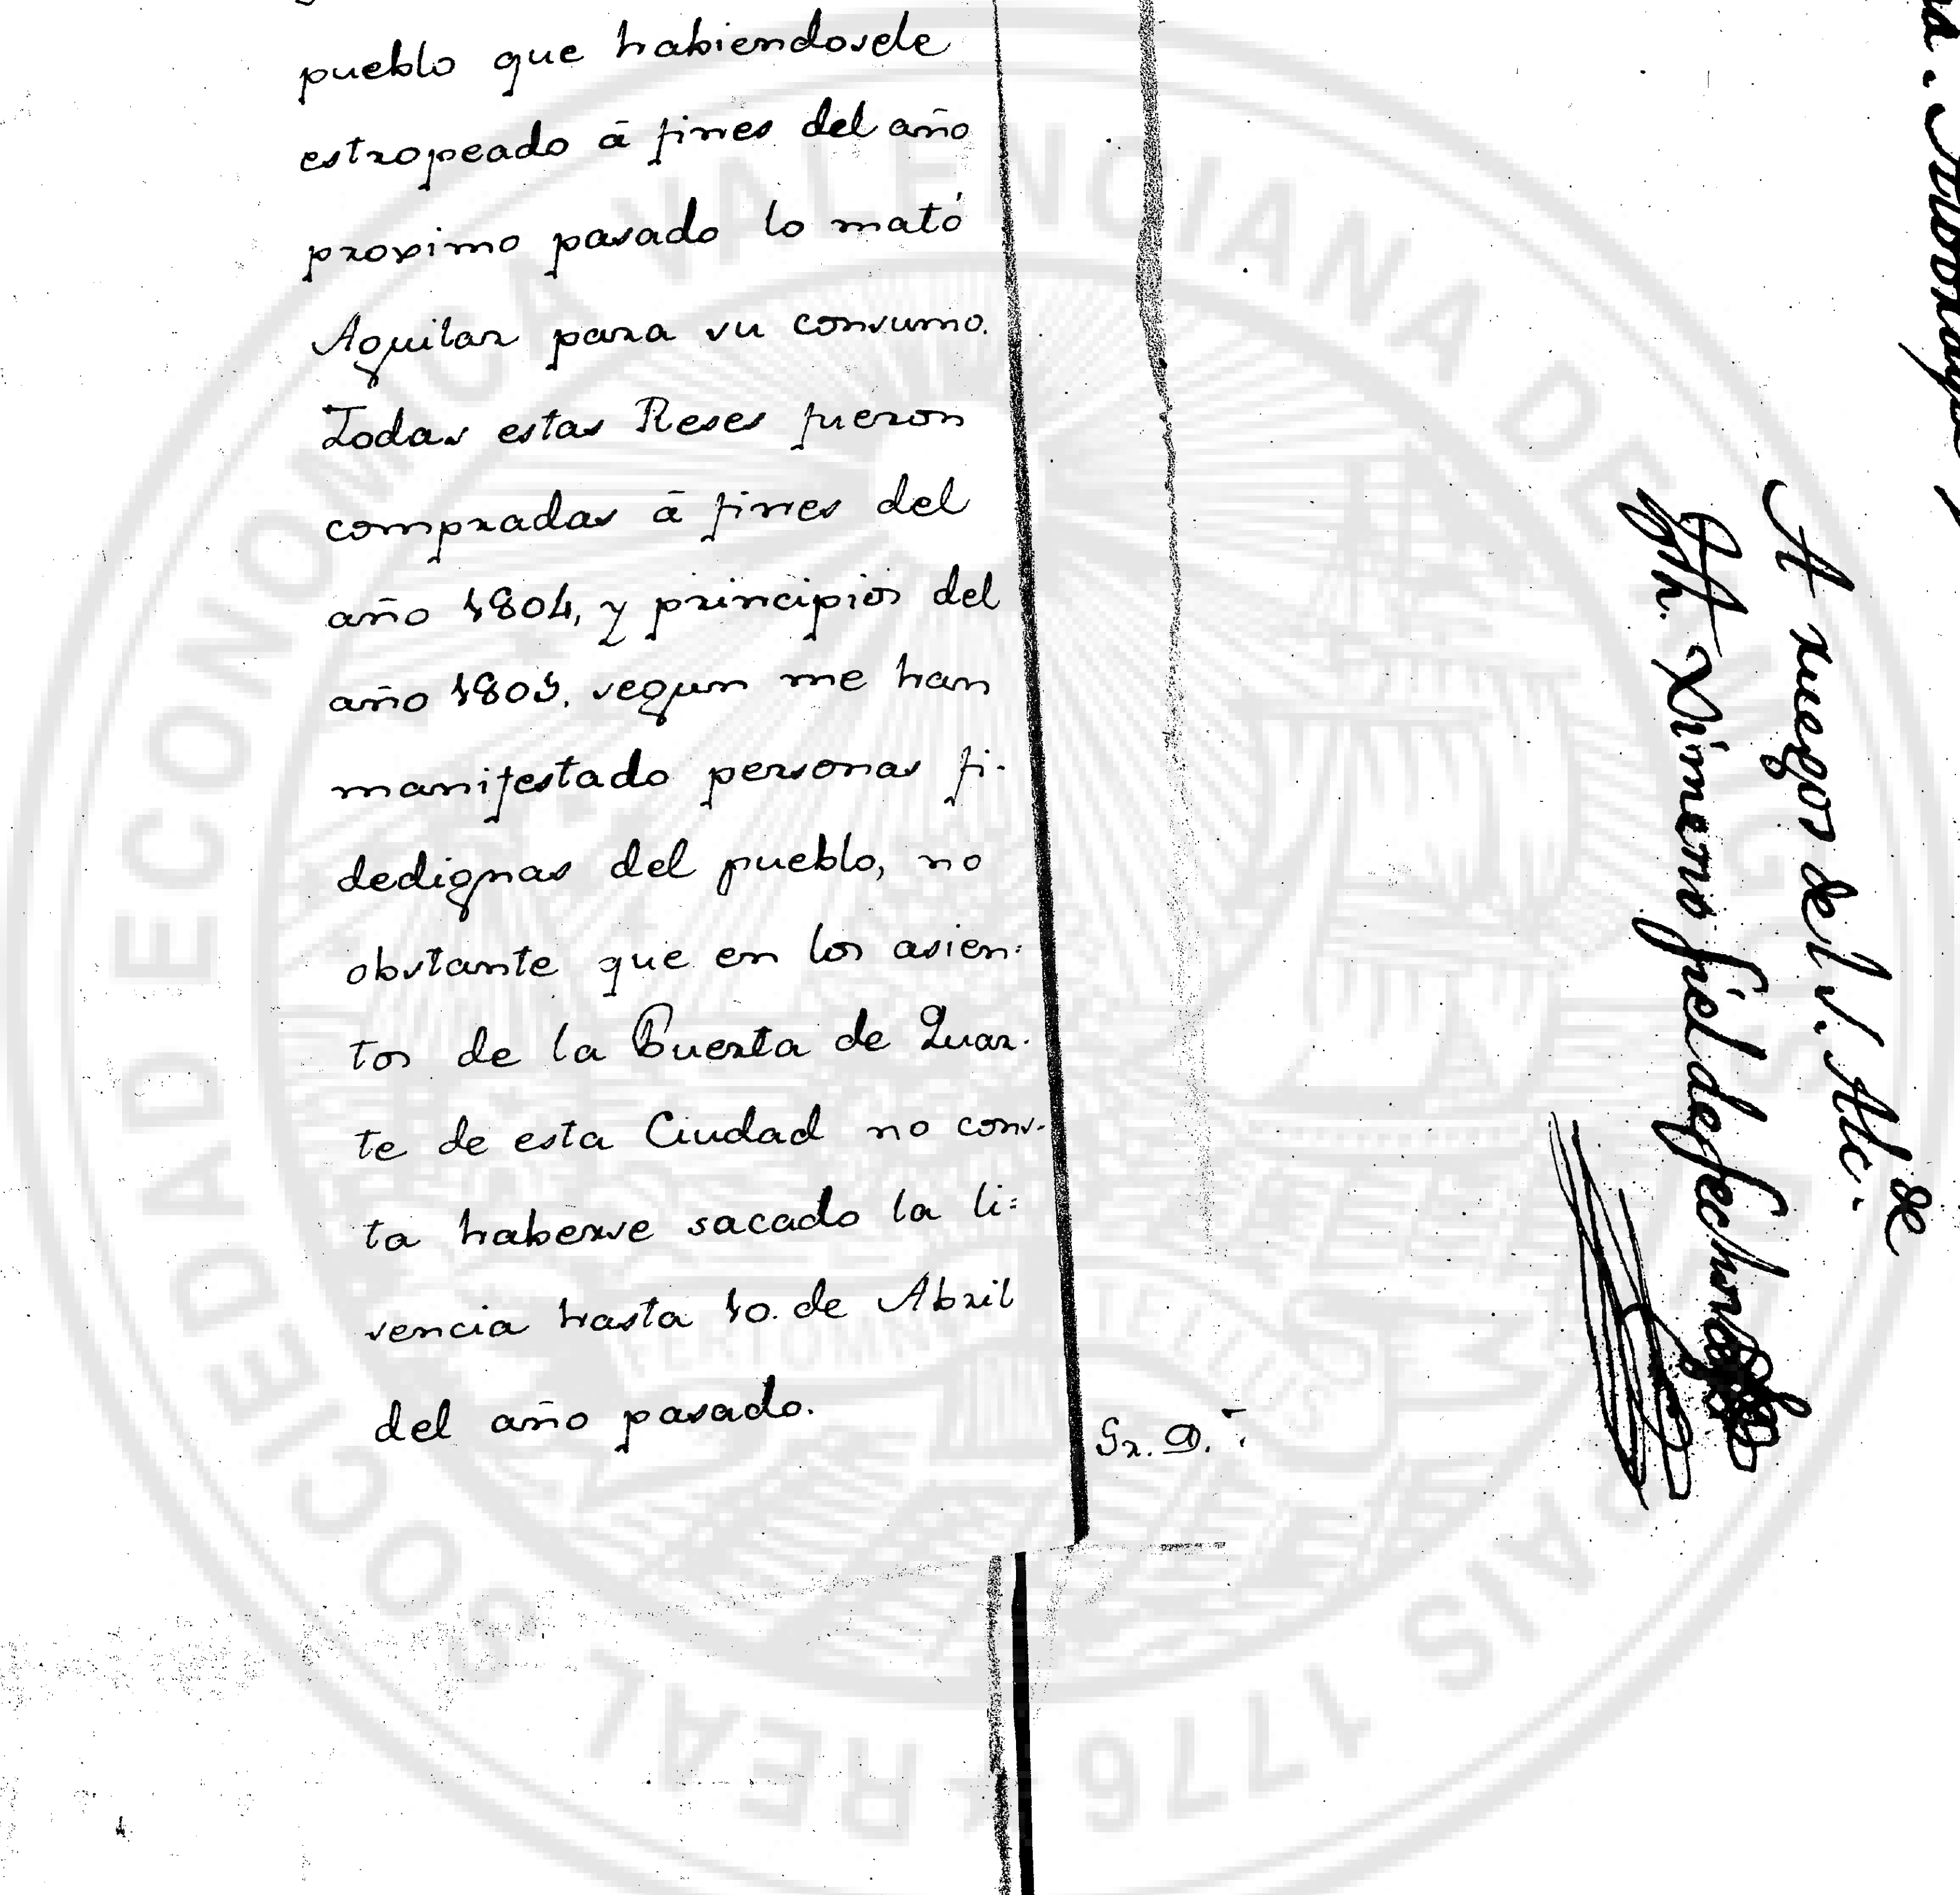 pueblo que habiendosele
estropeado á fines del año
proximo pasado lo mató
Aguilar para su consumo.
Todas estas Reses fueron
compradas á fines del
año 1804, y principios del
año 1805. segun me han
manifestado personas fi-
dedignas del pueblo, no
obstante que en los asien=
tos de la Puerta de Quar-
te de esta Ciudad no cons-
ta haberse sacado la li=
sencia hasta 10. de Abril
del año pasado.
Sr. D.
A ruegos del S. Alc. de
Jph. Ximeno fiel de fechos
REAL SOCIEDAD ECONOMICA VALENCIANA DE AMIGOS DEL PAIS 1776